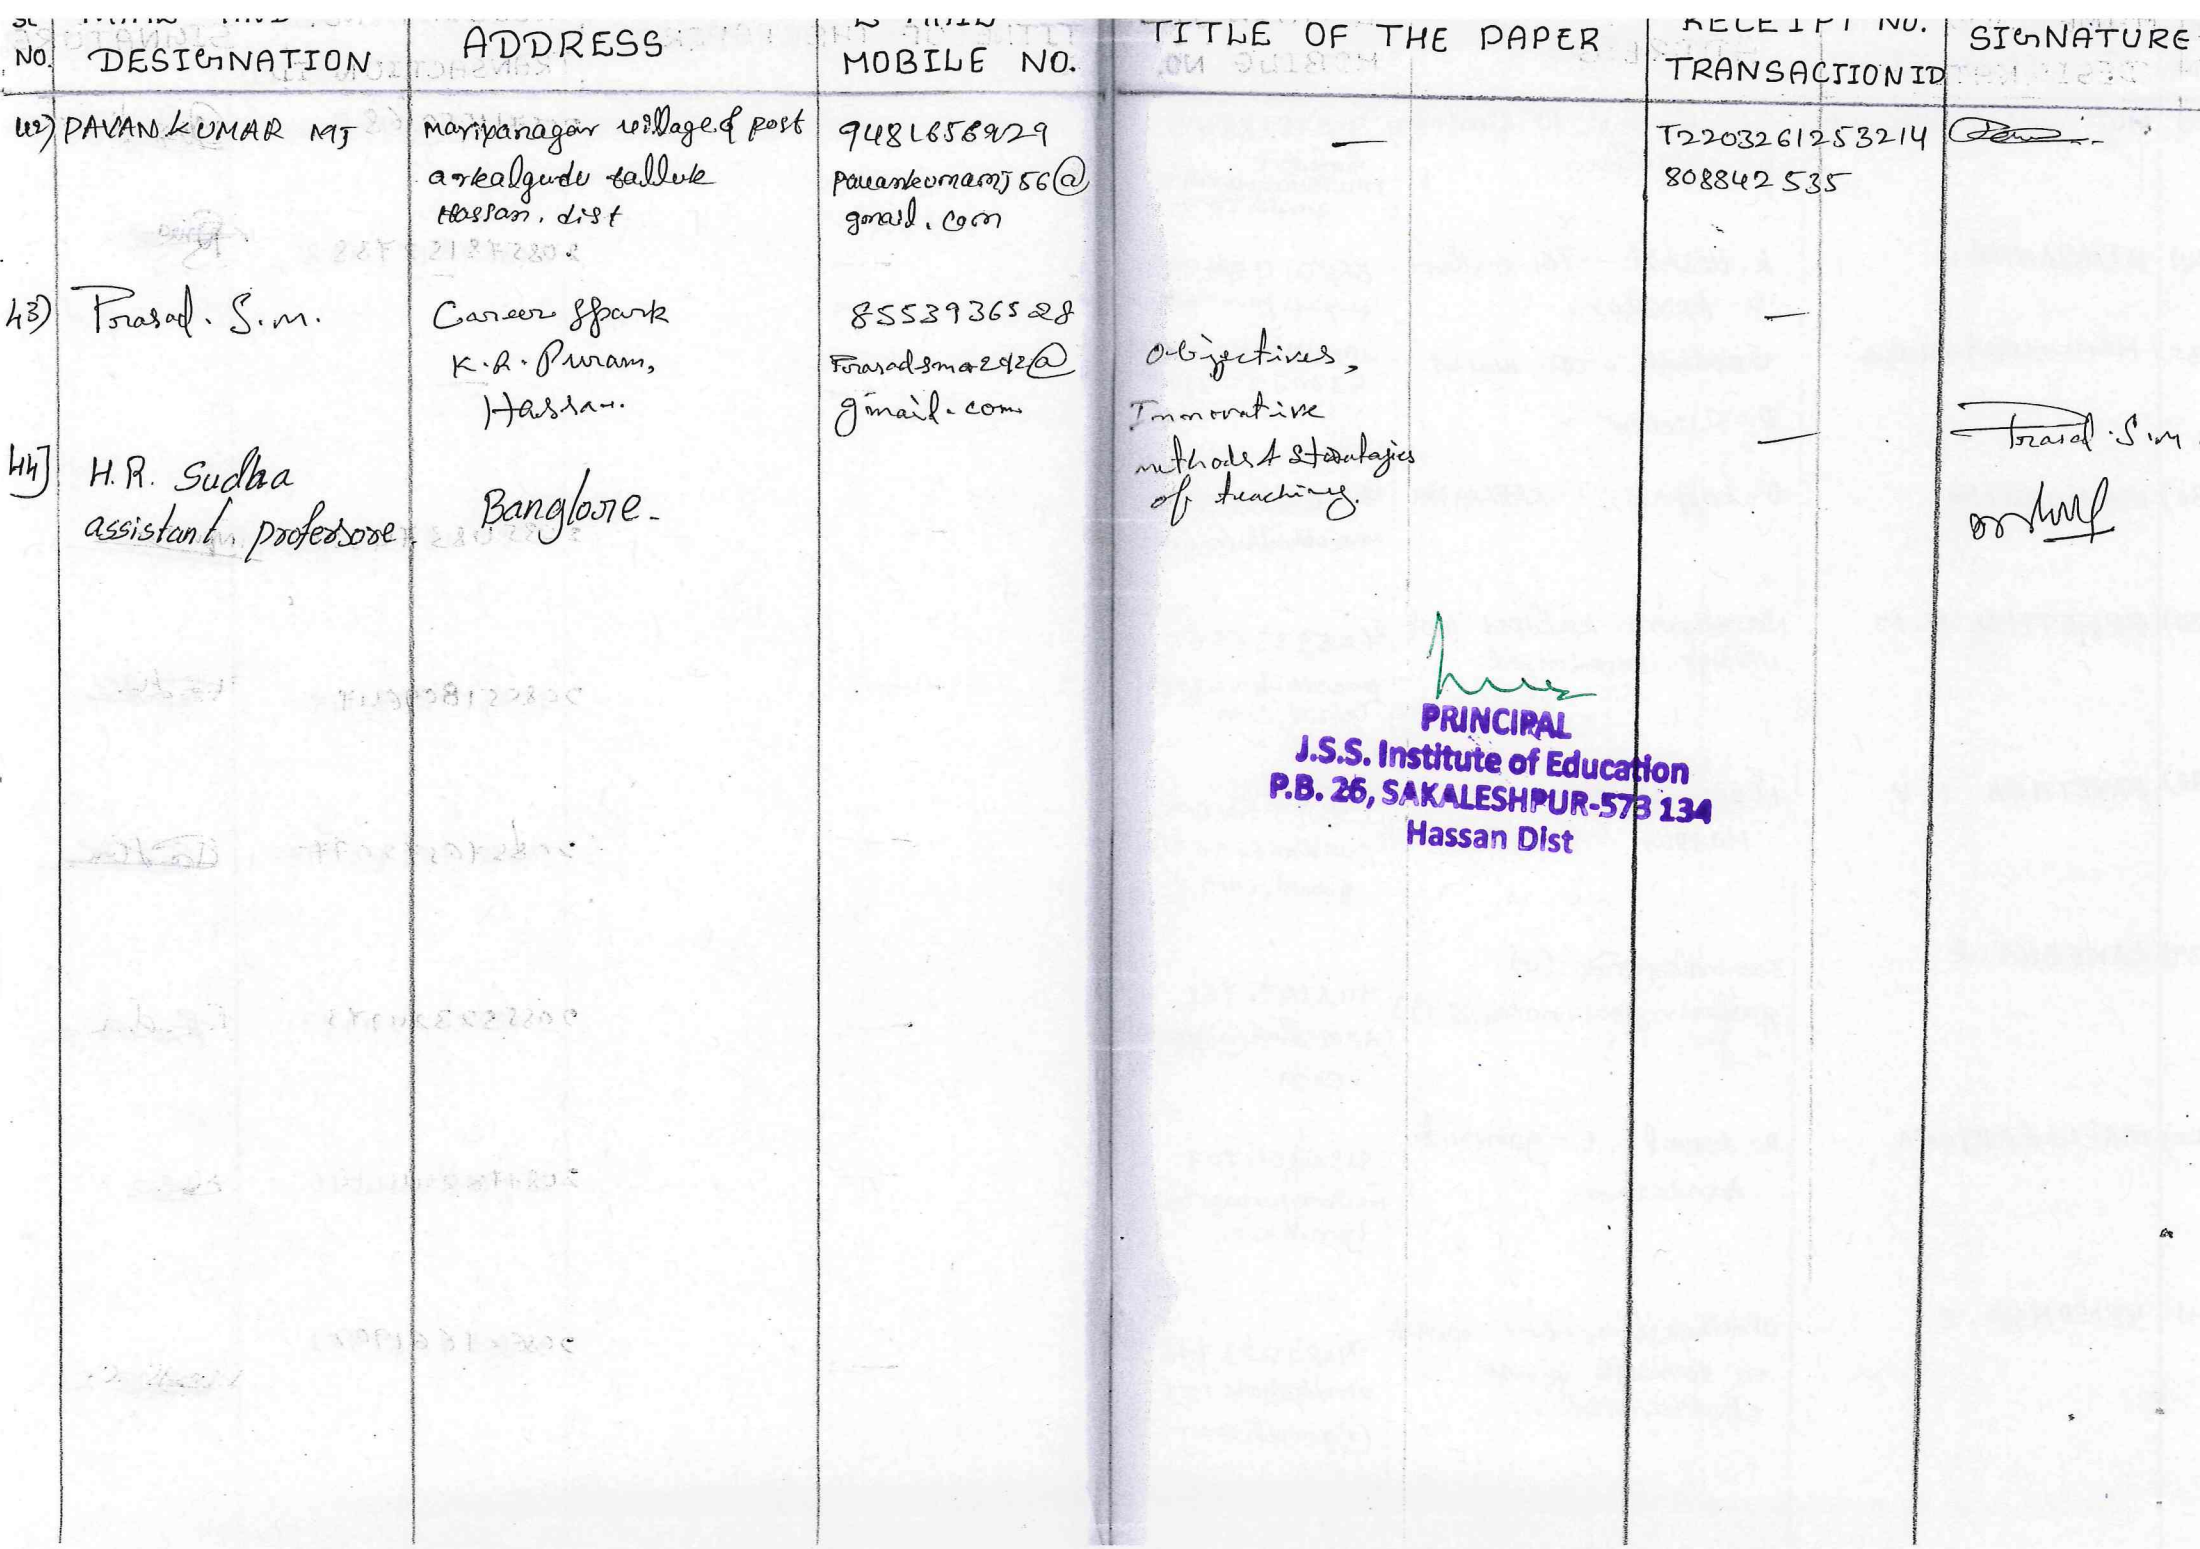 NO. DESIGNATION ADDRESS MOBILE NO. TITLE OF THE PAPER RECEIPT NO. SIGNATURE
TRANSACTION ID
42) PAVAN KUMAR MJ
village & post
arkalgudu talluk
Hassan. dist
gmail.com
—
T2203261253214
808842535
43) Prasad. S.m.
Career Spark
K.R. Puram,
Hassan.
8553936528
gmail.com
Objectives,
Innovative
methods & Stratagies
of teaching.
—
Prasad. S.m.
44] H.R. Sudha
assistant professore.
Banglore.
—
PRINCIPAL
J.S.S. Institute of Education
P.B. 26, SAKALESHPUR-573 134
Hassan Dist